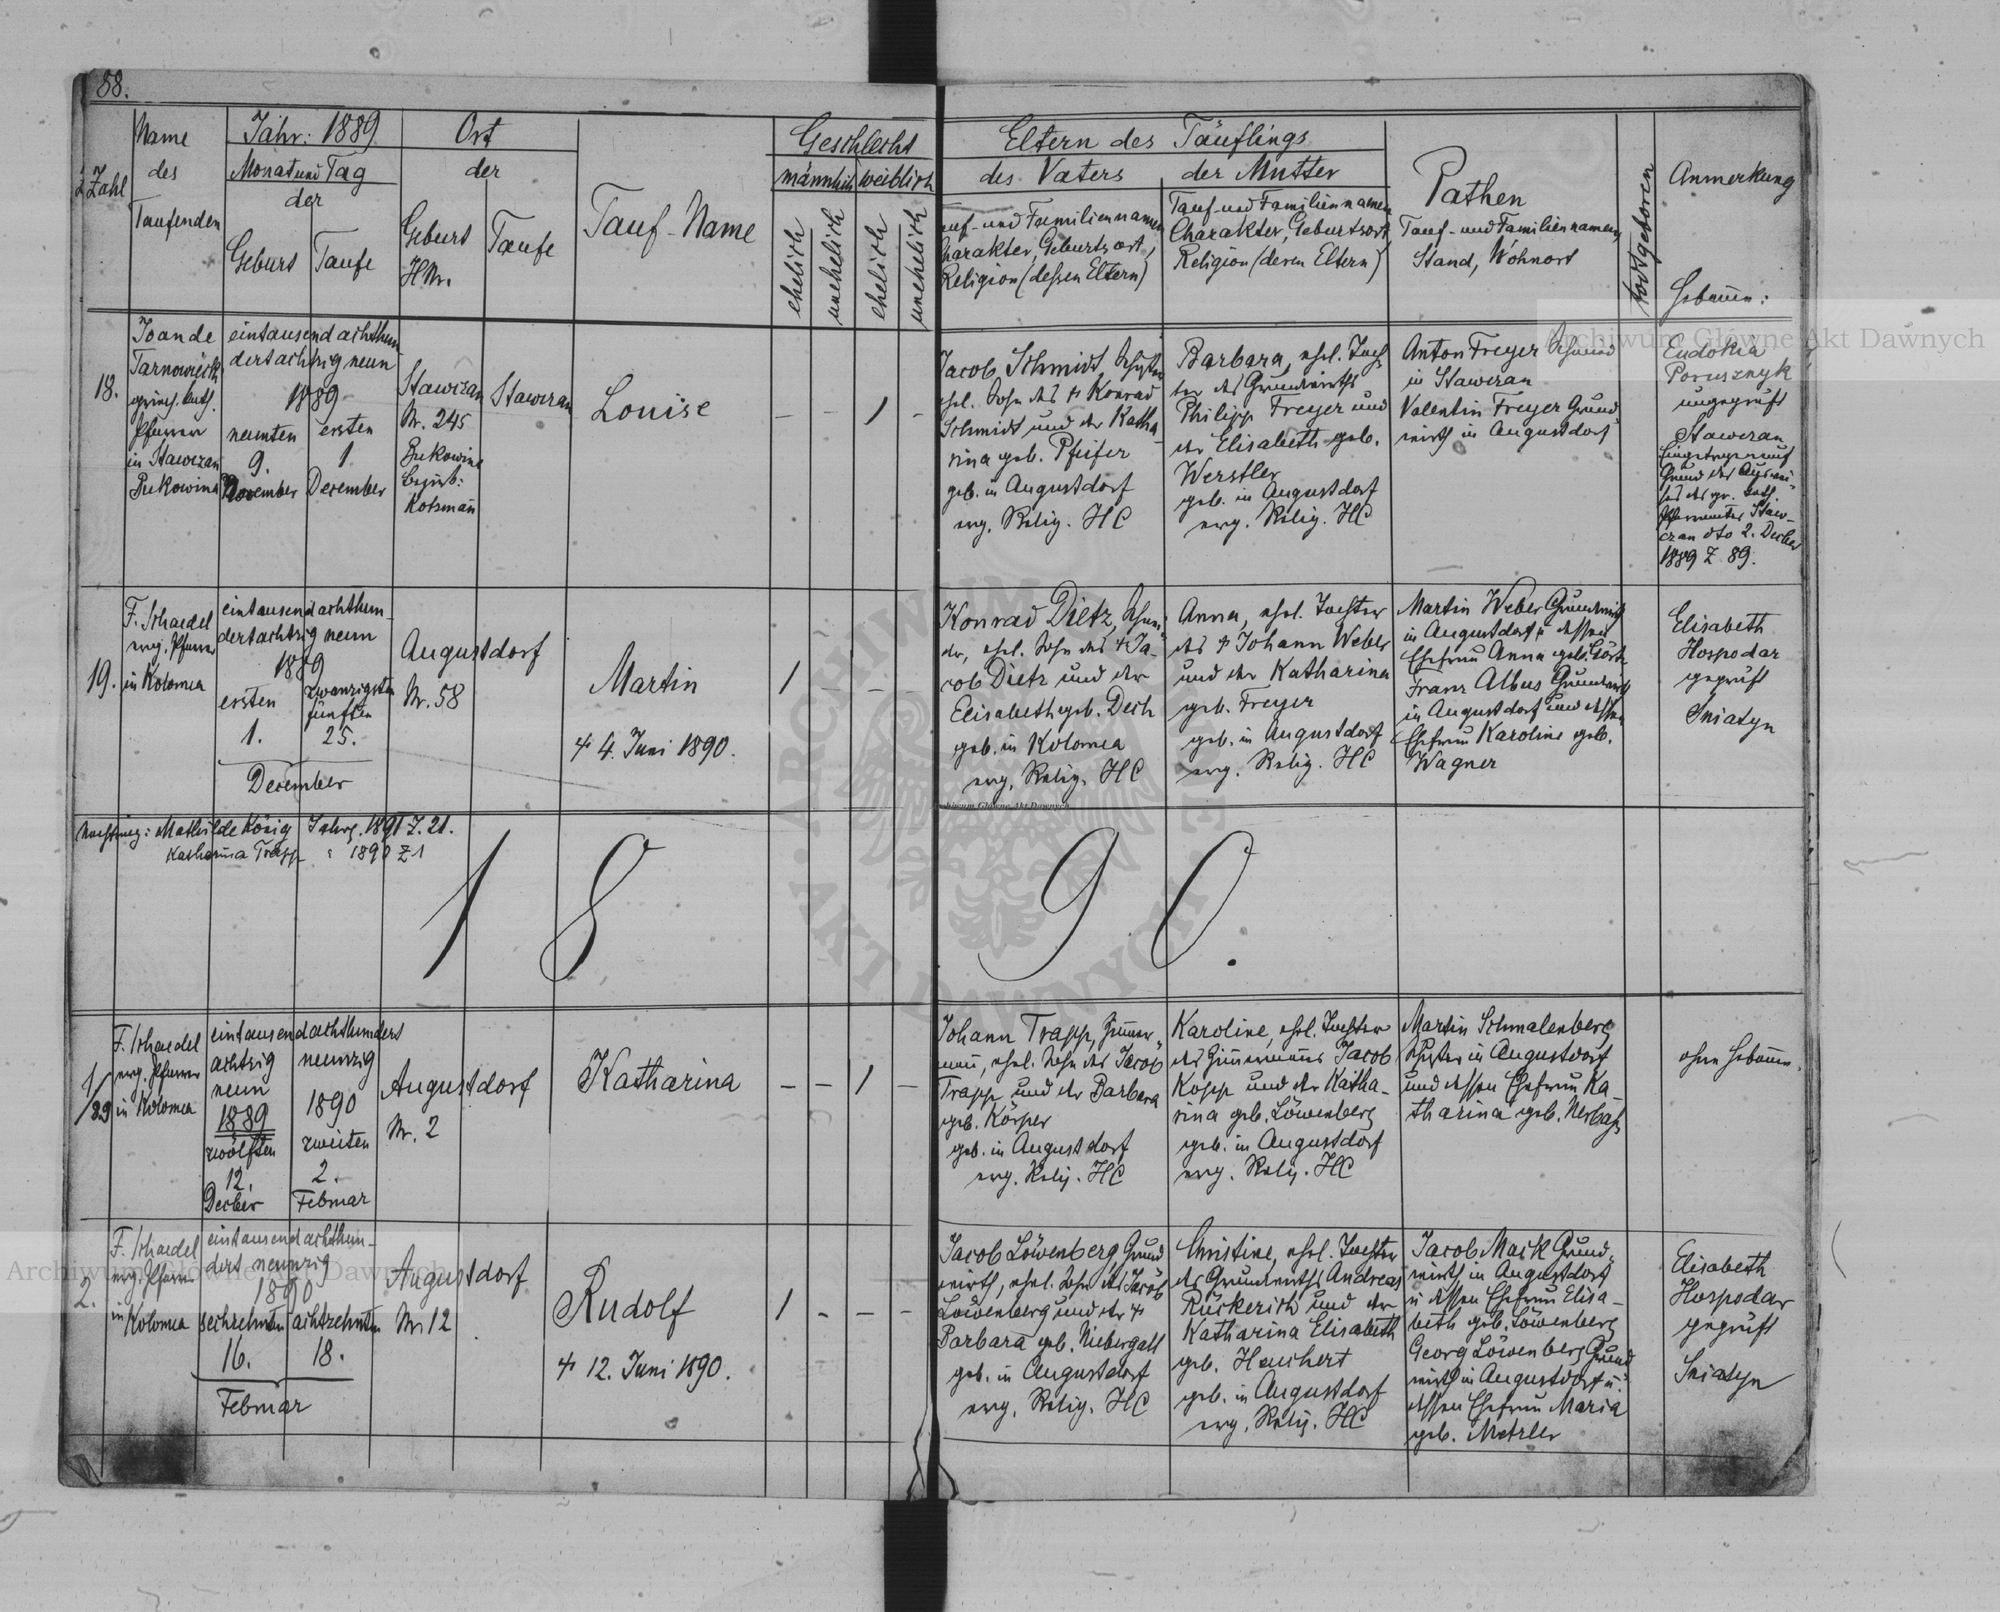 58.
Zahl
Name
des
Taufenden
Jahr: 1889
Monat und Tag
der
Geburt
Taufe
Ort
der
Geburt
HNr.
Taufe
Tauf-Name
Geschlecht
männlich
weiblich
ehelich
unehelich
ehelich
unehelich
Eltern des Täuflings
des Vaters
der Mutter
Tauf- und Familiennamen
Charakter, Geburtsort,
Religion (dessen Eltern)
Tauf- und Familiennamen
Charakter, Geburtsort
Religion (deren Eltern)
Pathen
Tauf- und Familiennamen,
Stand, Wohnort
todtgeboren
Anmerkung
Hebamme:
18.
Joan de
Tarnowiecki
griech. kath.
Pfarrer
in Stawczan
Bukowina
eintausend achthun-
dertachtzig neun
1889
neunten
9.
November
ersten
1.
December
Stawczan
Nr. 245
Bukowina
Bezirk:
Kotsman
Stawczan
Louise
- - 1 -
Jacob Schmidt,
ehel. Sohn des † Konrad
Schmidt und der Katha-
rina geb. Pfeifer
geb. in Augustdorf
evg. Relig. HC
Barbara, ehel. Toch-
ter des Grundwirths
Philipp Freyer und
der Elisabeth geb.
Werstler
geb. in Augustdorf
evg. Relig. HC
Anton Freyer Schmied
in Stawczan
Valentin Freyer Grund-
wirth in Augustdorf
Eudokia
Porusznyk
ungeprüft
Stawczan
Eingetragen auf
Grund des Auswei-
ses des gr. kath.
Pfarramtes Staw-
czan dto 2. Decber
1889 Z 89.
19.
F. Schaedel
evg. Pfarrer
in Kolomea
eintausend achthun-
dertachtzig neun
1889
ersten
1.
zwanzigsten
fünften
25.
December
Augustdorf
Nr. 58
Martin
† 4. Juni 1890.
1 - - -
Konrad Dietz,
ehel. Sohn des † Ja-
cob Dietz und der
Elisabeth geb. Dech
geb. in Kolomea
evg. Relig. HC
Anna, ehel. Tochter
des † Johann Weber
und der Katharina
geb. Freyer
geb. in Augustdorf
evg. Relig. HC
Martin Weber Grundwirth
in Augustdorf u dessen
Ehefrau Anna geb.
Franz Albus Grundwirth
in Augustdorf und dessen
Ehefrau Karoline geb.
Wagner
Elisabeth
Hospodar
geprüft
Sniatyn
Nachtrag: Mathilde König Jahrg. 1891 Z. 21.
Katharina Trapp " 1890 Z 1
1890.
1/89
F. Schaedel
evg. Pfarrer
in Kolomea
eintausend achthundert
achtzig
neun
1889
zwölften
12.
Decber
neunzig
1890
zweiten
2.
Februar
Augustdorf
Nr. 2
Katharina
- - 1 -
Johann Trapp, Zimmer-
mann, ehel. Sohn des Jacob
Trapp und der Barbara
geb. Körper
geb. in Augustdorf
evg. Relig. HC
Karoline, ehel. Tochter
des Zimmermanns Jacob
Kopp und der Katha-
rina geb. Löwenberg
geb. in Augustdorf
evg. Relig. HC
Martin Schmalenberg
in Augustdorf
und dessen Ehefrau Ka-
tharina geb.
ohne Hebamme.
2.
F. Schaedel
evg. Pfarrer
in
Kolomea
eintausend achthun-
dert neunzig
1890
sechzehnten
16.
achtzehnten
18.
Februar
Augustdorf
Nr. 12
Rudolf
† 12. Juni 1890.
1 - - -
Jacob Löwenberg, Grund-
wirth, ehel. Sohn des Jacob
Löwenberg und der †
Barbara geb. Niebergall
geb. in Augustdorf
evg. Relig. HC
Christine, ehel. Tochter
des Grundwirths Andreas
Rückerich und der
Katharina Elisabeth
geb. Hauchert
geb. in Augustdorf
evg. Relig. HC
Jacob Mack Grund-
wirth in Augustdorf
u dessen Ehefrau Elisa-
beth geb. Löwenberg
Georg Löwenberg Grund-
wirth in Augustdorf u.
dessen Ehefrau Maria
geb. Metzler
Elisabeth
Hospodar
geprüft
Sniatyn
Archiwum Główne Akt Dawnych
Archiwum Główne Akt Dawnych
Archiwum Główne Akt Dawnych
ARCHIWUM GŁÓWNE AKT DAWNYCH